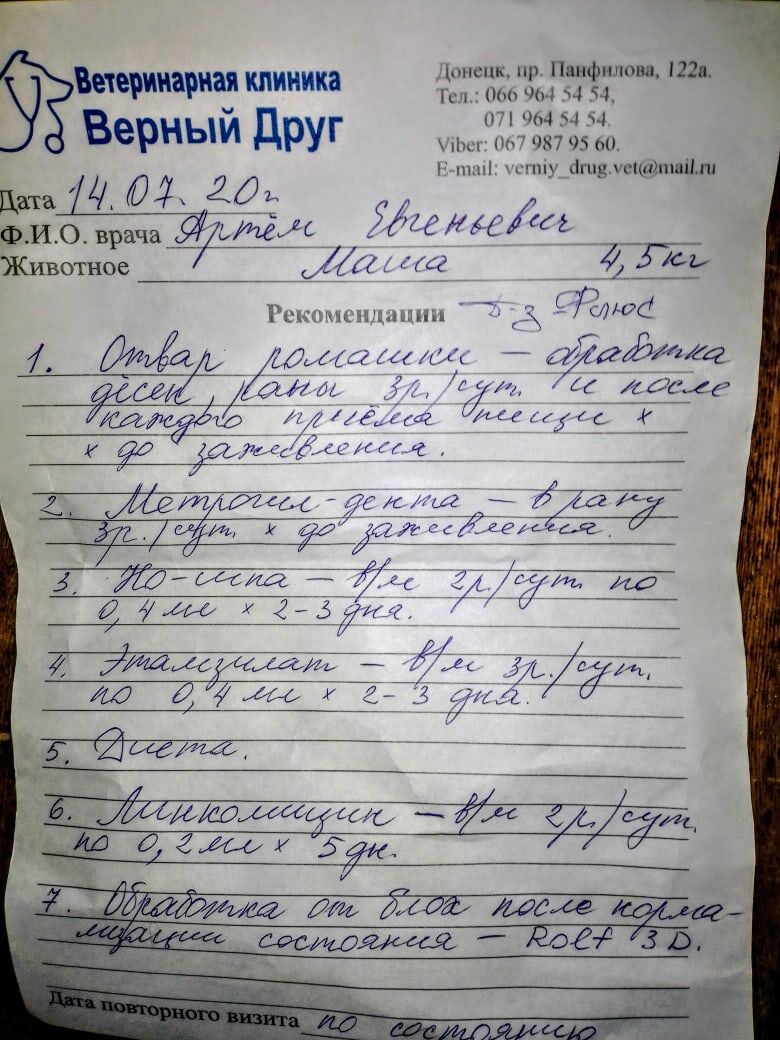 Ветеринарная клиника
Верный Друг
Донецк, пр. Панфилова, 122а.
Тел.: 066 964 54 54,
071 964 54 54.
Viber: 067 987 95 60.
E-mail: verniy_drug.vet@mail.ru
Дата 14.07.20г
Ф.И.О. врача Артём Евгеньевич
Животное Маша 4,5кг
Рекомендации Д-з Флюс
1. Отвар ромашки – обработка
дёсен, раны 3р./сут. и после
каждого приёма пищи х
х до заживления.
2. Метрогил-дента – в рану
3р./сут. х до заживления.
3. Но-шпа – в/м 2р./сут. по
0,4 мл х 2-3 дня.
4. Этамзилат – в/м 3р./сут.
по 0,4 мл х 2-3 дня.
5. Диета.
6. Линкомицин – в/м 2р./сут.
по 0,2 мл х 5 дн.
7. Обработка от блох после норма-
лизации состояния – Rolf 3D.
Дата повторного визита по состоянию